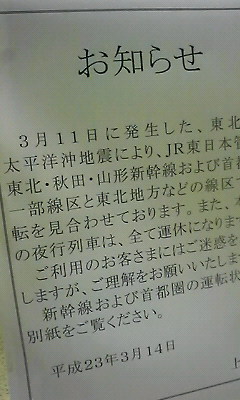 お知らせ
3月11日に発生した、東北
太平洋沖地震により、JR東日本管
東北・秋田・山形新幹線および首都
一部線区と東北地方などの線区で
転を見合わせております。また、本
の夜行列車は、全て運休になります
ご利用のお客さまにはご迷惑を
しますが、ご理解をお願いいたしま
新幹線および首都圏の運転状
別紙をご覧ください。
平成23年3月14日